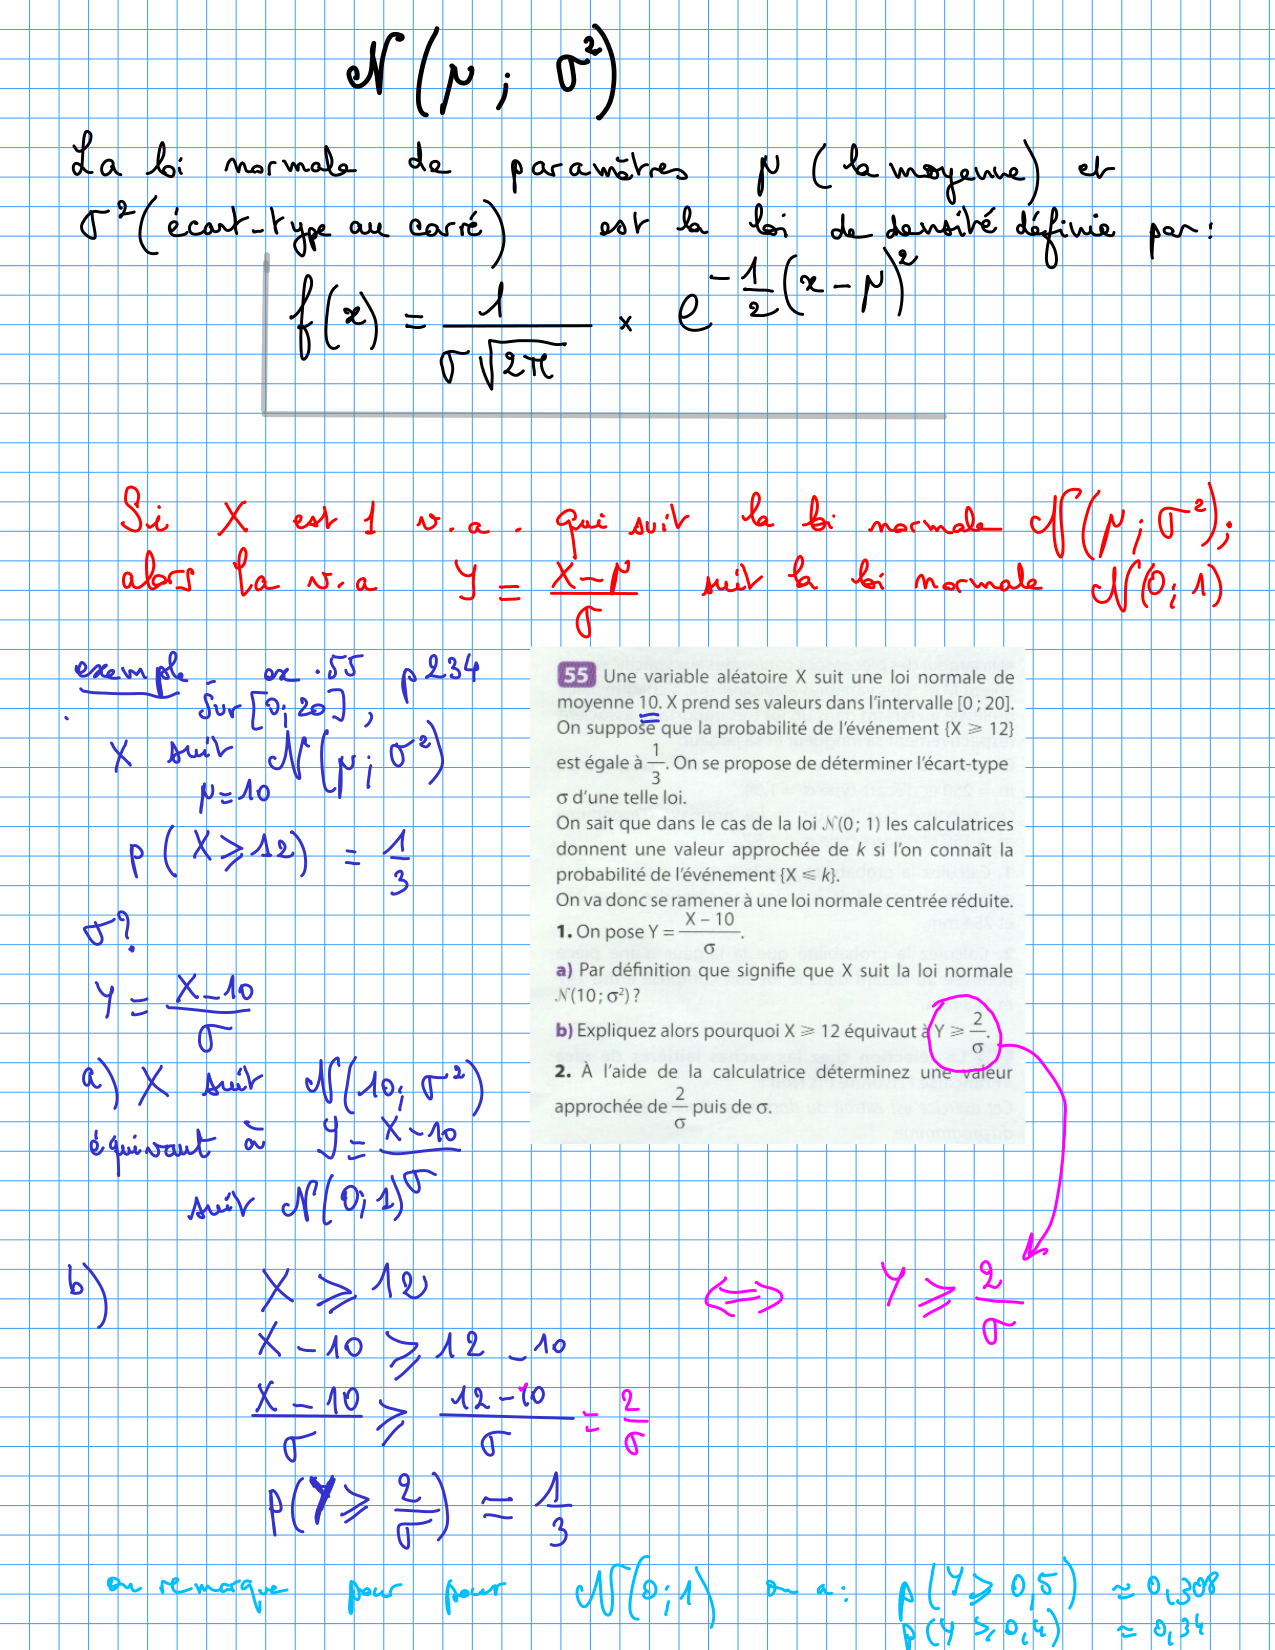 𝒩(μ ; σ²)
La loi normale de paramètres μ (la moyenne) et
σ² (écart-type au carré) est la loi de densité définie par :
f(x) = 1/(σ√(2π)) × e^(-1/2 (x - μ)²)
Si X est 1 v.a. qui suit la loi normale 𝒩(μ ; σ²) ;
alors la v.a Y = (X - μ)/σ suit la loi normale 𝒩(0 ; 1)
exemple - ex .55 p 234
Sur [0 ; 20] ,
X suit 𝒩(μ ; σ²)
μ = 10
p(X ⩾ 12) = 1/3
σ ?
Y = (X - 10)/σ
a) X suit 𝒩(10 ; σ²)
équivaut à Y = (X - 10)/σ
suit 𝒩(0 ; 1)
55 Une variable aléatoire X suit une loi normale de
moyenne 10. X prend ses valeurs dans l'intervalle [0 ; 20].
On suppose que la probabilité de l'événement {X ⩾ 12}
est égale à 1/3. On se propose de déterminer l'écart-type
σ d'une telle loi.
On sait que dans le cas de la loi 𝒩(0 ; 1) les calculatrices
donnent une valeur approchée de k si l'on connaît la
probabilité de l'événement {X ⩽ k}.
On va donc se ramener à une loi normale centrée réduite.
1. On pose Y = (X – 10)/σ.
a) Par définition que signifie que X suit la loi normale
𝒩(10 ; σ²) ?
b) Expliquez alors pourquoi X ⩾ 12 équivaut à Y ⩾ 2/σ.
2. À l'aide de la calculatrice déterminez une valeur
approchée de 2/σ puis de σ.
b) X ⩾ 12 ⟺ Y ⩾ 2/σ
X - 10 ⩾ 12 - 10
(X - 10)/σ ⩾ (12 - 10)/σ = 2/σ
p(Y ⩾ 2/σ) = 1/3
on remarque pour pour 𝒩(0 ; 1) on a : p(Y ⩾ 0,5) ≈ 0,308
p(Y ⩾ 0,4) ≈ 0,34